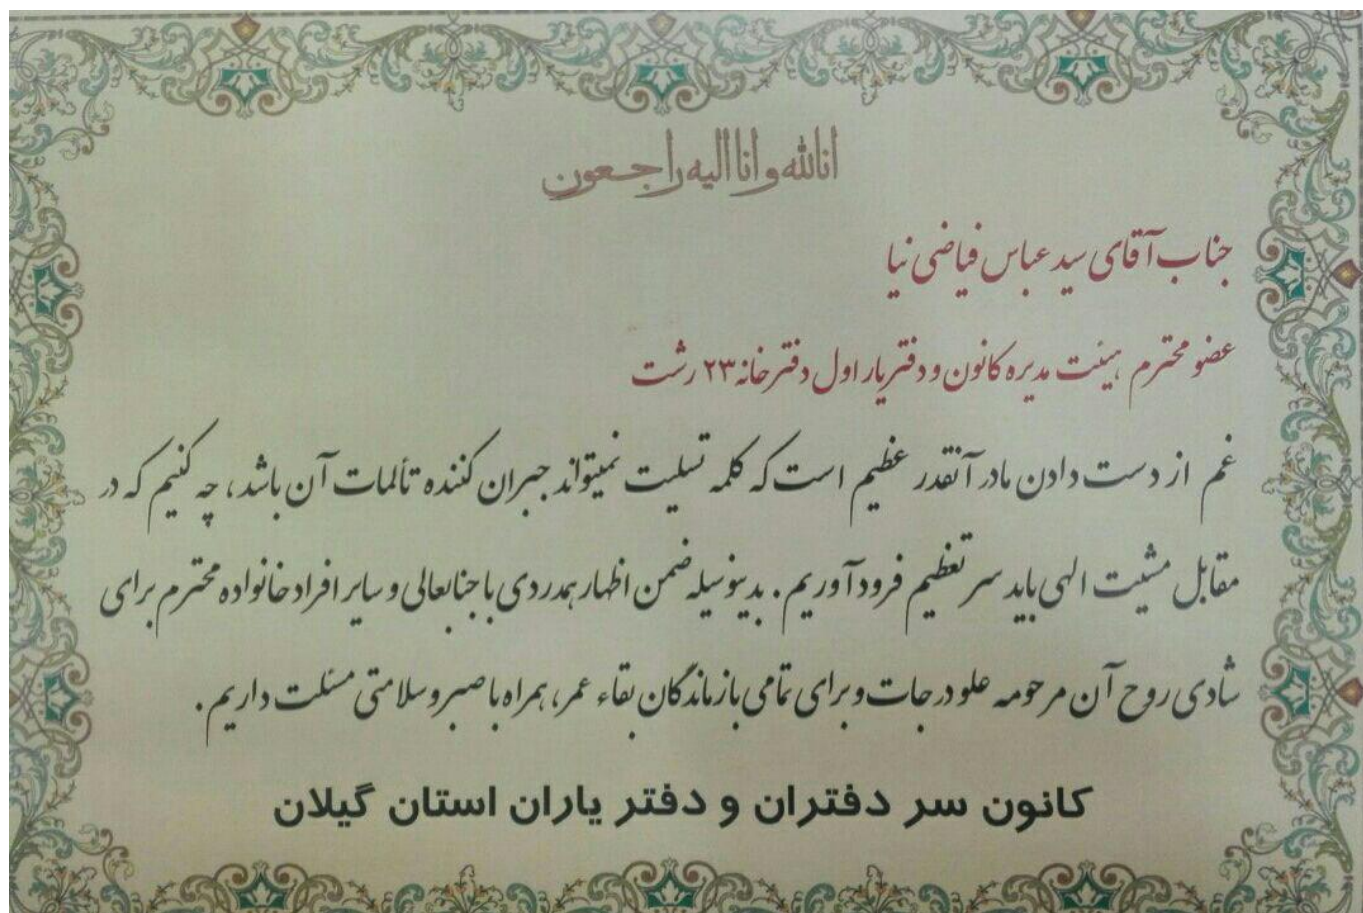 انالله و انا الیه راجعون
جناب آقای سید عباس فیاضی نیا
عضو محترم هیئت مدیره کانون و دفتریار اول دفترخانه ۲۳ رشت
غم از دست دادن مادر آنقدر عظیم است که کلمه تسلیت نمیتواند جبران کننده تألمات آن باشد، چه کنیم که در
مقابل مشیت الهی باید سر تعظیم فرود آوریم. بدینوسیله ضمن اظهار همدردی با جنابعالی و سایر افراد خانواده محترم برای
شادی روح آن مرحومه علو درجات و برای تمامی بازماندگان بقاء عمر، همراه با صبر و سلامتی مسئلت داریم.
کانون سر دفتران و دفتر یاران استان گیلان